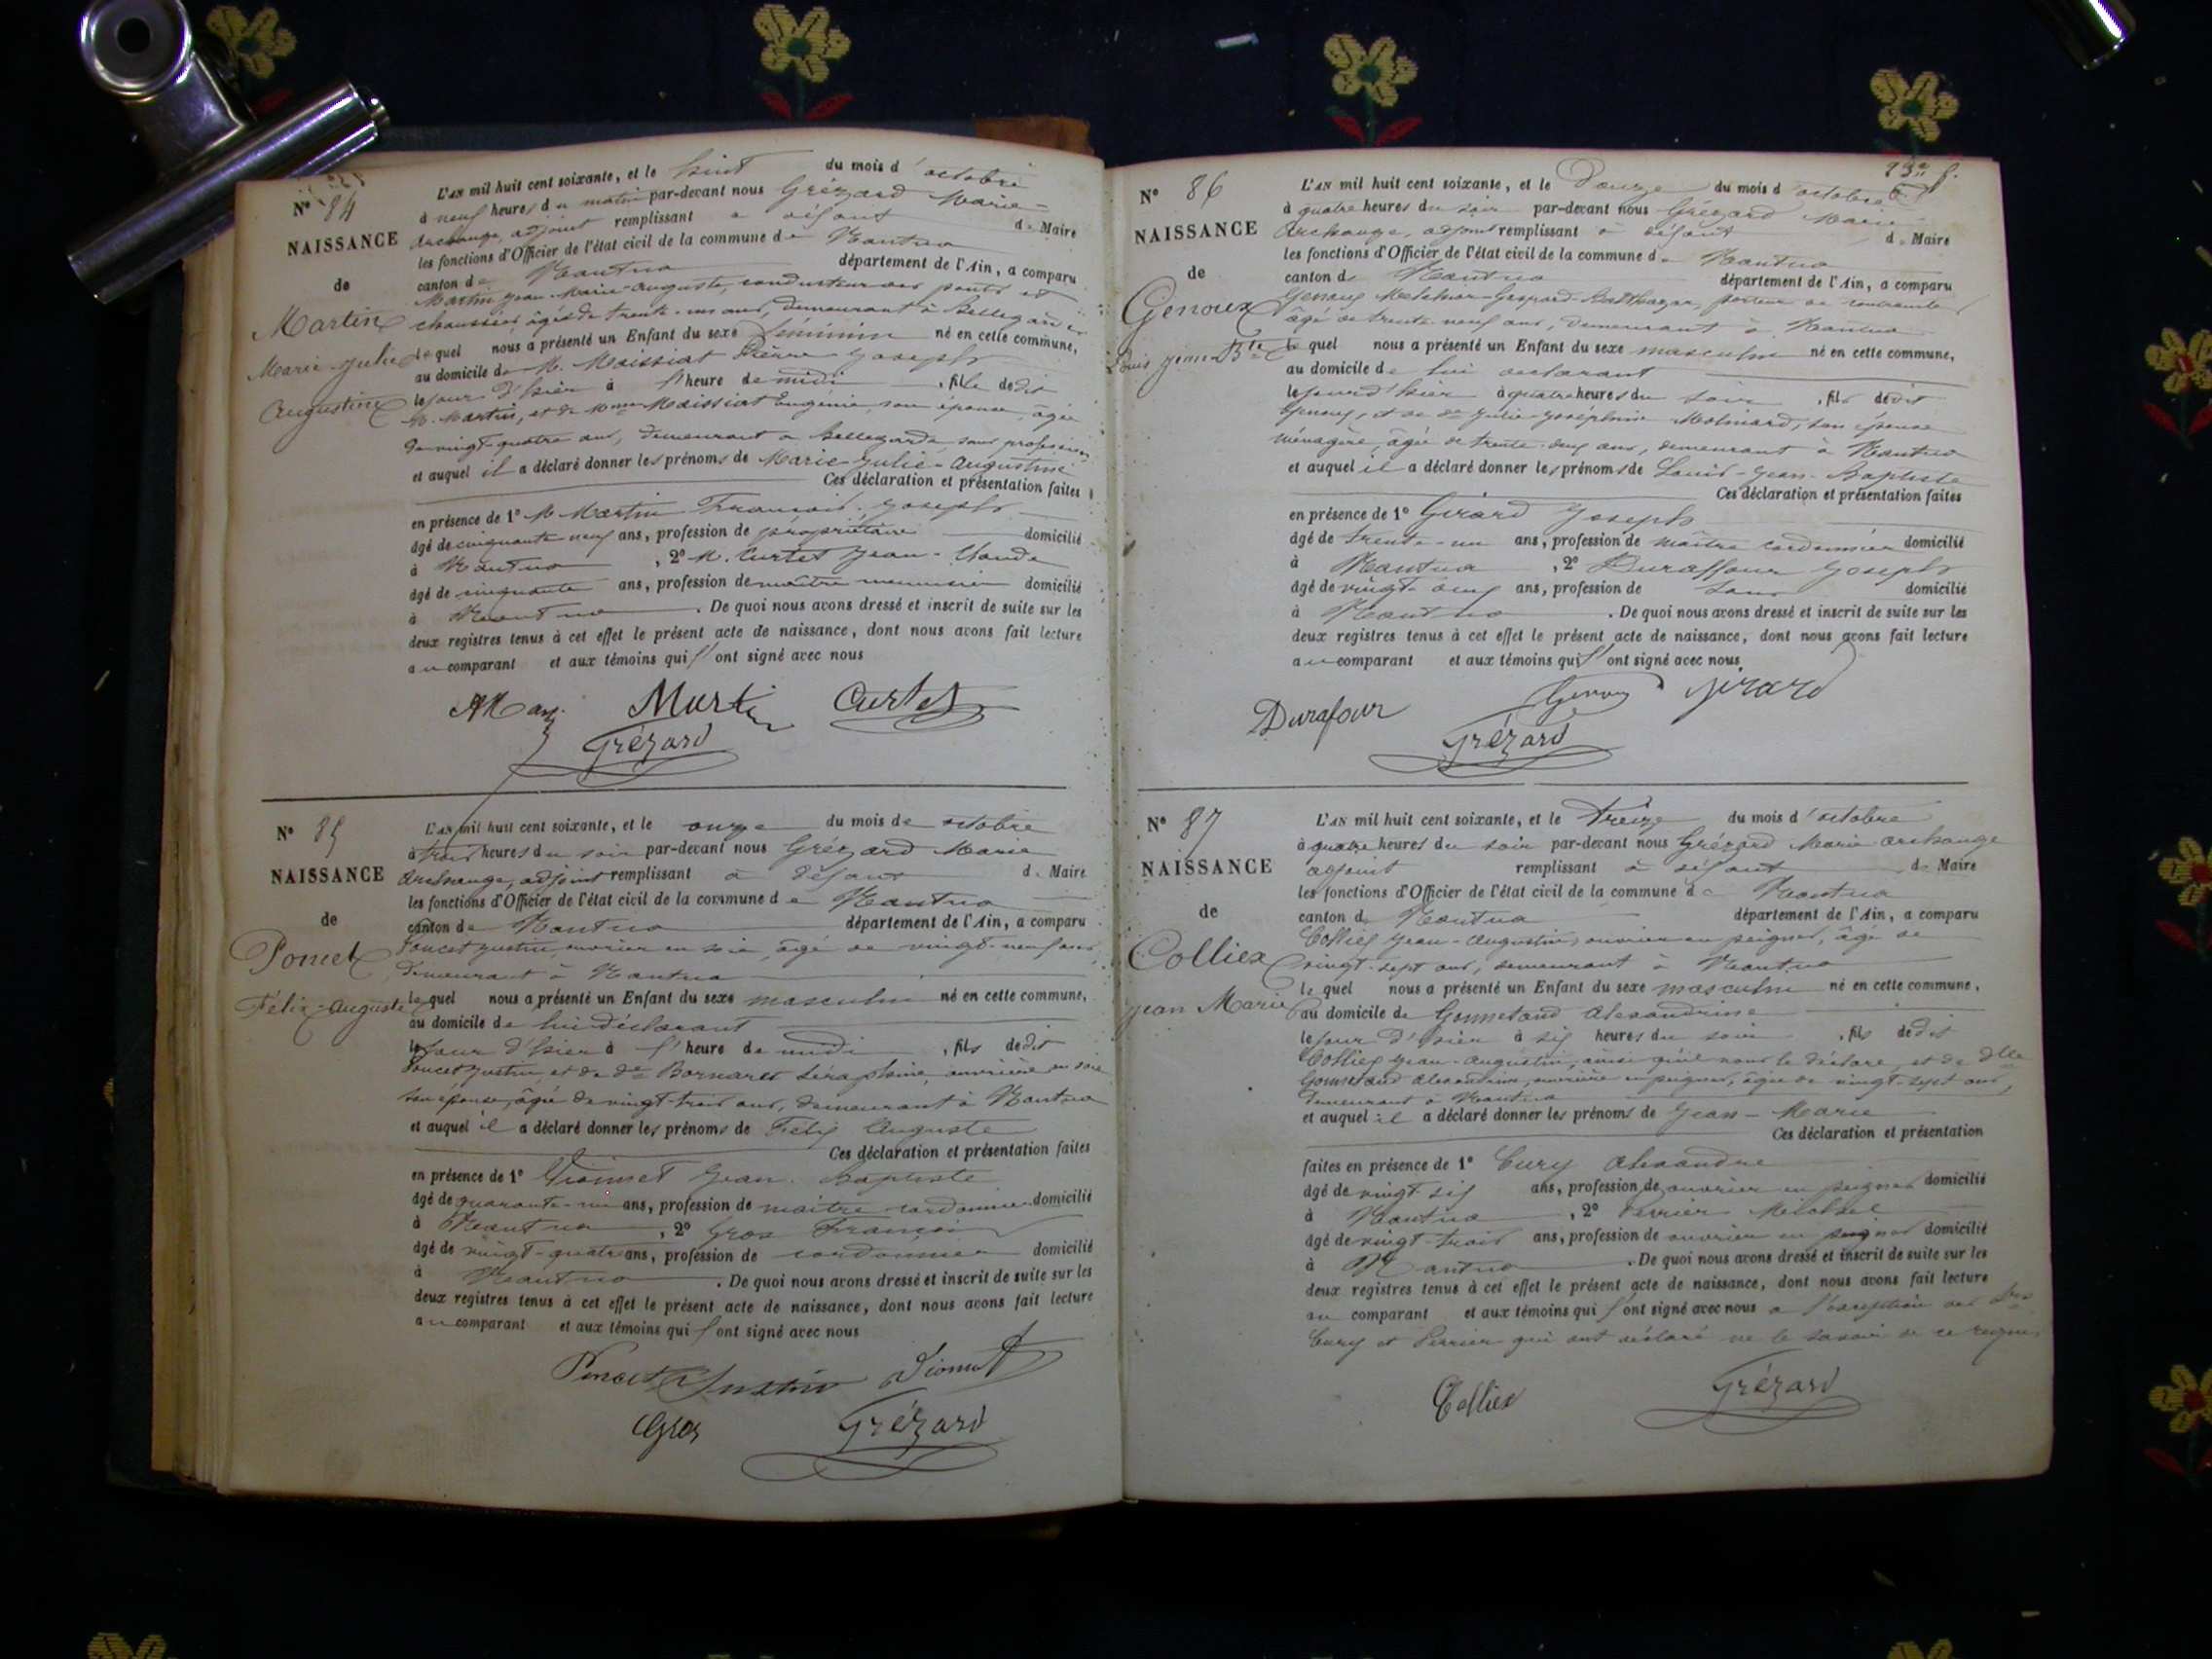 N° 84
NAISSANCE
de
Martin
Marie Julie
Augustine
L'AN mil huit cent soixante, et le huit du mois d'octobre
à neuf heures du matin par-devant nous Grézard Marie-
Archange, adjoint remplissant à défaut de Maire
les fonctions d'Officier de l'état civil de la commune de Nantua
canton de Nantua département de l'Ain, a comparu
Martin Jean-Marie-Auguste, conducteur des ponts et
chaussées, âgé de trente-un ans, demeurant à Bellegarde
lequel nous a présenté un Enfant du sexe féminin né en cette commune,
au domicile de M. Maissiat Pierre Joseph
le jour d'hier à l'heure de midi, fille de dit
M. Martin, et de Mme Maissiat Eugénie, son épouse, âgée
de vingt-quatre ans, demeurant à Bellegarde sans profession
et auquel il a déclaré donner les prénoms de Marie-Julie-Augustine
Ces déclaration et présentation faites
en présence de 1° M. Martin François-Joseph
âgé de cinquante neuf ans, profession de propriétaire domicilié
à Nantua, 2° M. Curtet Jean-Claude
âgé de cinquante ans, profession de maître menuisier domicilié
à Nantua. De quoi nous avons dressé et inscrit de suite sur les
deux registres tenus à cet effet le présent acte de naissance, dont nous avons fait lecture
au comparant et aux témoins qui l'ont signé avec nous
Martin Curtet
Grézard
N° 85
NAISSANCE
de
Poncet
Félix-Auguste
L'AN mil huit cent soixante, et le onze du mois de octobre
à trois heures du soir par-devant nous Grézard Marie
Archange, adjoint remplissant à défaut de Maire
les fonctions d'Officier de l'état civil de la commune de Nantua
canton de Nantua département de l'Ain, a comparu
Poncet Justin, ouvrier en soie, âgé de vingt-neuf ans,
demeurant à Nantua
lequel nous a présenté un Enfant du sexe masculin né en cette commune,
au domicile de lui déclarant
le jour d'hier à l'heure de midi, fils de dit
Poncet Justin, et de de Bornaret Séraphine, ouvrière en soie
son épouse, âgée de vingt-trois ans, demeurant à Nantua
et auquel il a déclaré donner les prénoms de Félix Auguste
Ces déclaration et présentation faites
en présence de 1° Vionnet Jean-Baptiste
âgé de quarante-un ans, profession de maître cordonnier domicilié
à Nantua, 2° Gros François
âgé de vingt-quatre ans, profession de cordonnier domicilié
à Nantua. De quoi nous avons dressé et inscrit de suite sur les
deux registres tenus à cet effet le présent acte de naissance, dont nous avons fait lecture
au comparant et aux témoins qui l'ont signé avec nous
Poncet Justin Vionnet
Gros Grézard
N° 86
NAISSANCE
de
Genoux
Louis Jean-Bte
L'AN mil huit cent soixante, et le Douze du mois d'octobre
à quatre heures du soir par-devant nous Grézard Marie
Archange, adjoint remplissant à défaut de Maire
les fonctions d'Officier de l'état civil de la commune de Nantua
canton de Nantua département de l'Ain, a comparu
Genoux Melchior-Gaspard-Balthazar, porteur de contrainte
âgé de trente-neuf ans, demeurant à Nantua
lequel nous a présenté un Enfant du sexe masculin né en cette commune,
au domicile de lui déclarant
le jour d'hier à quatre heures du soir, fils dudit
Genoux, et de de Julie-Joséphine Molinard, son épouse
ménagère, âgée de trente-deux ans, demeurant à Nantua
et auquel il a déclaré donner les prénoms de Louis-Jean-Baptiste
Ces déclaration et présentation faites
en présence de 1° Girard Joseph
âgé de trente-un ans, profession de maître cordonnier domicilié
à Nantua, 2° Duraffour Joseph
âgé de vingt-deux ans, profession de sans domicilié
à Nantua. De quoi nous avons dressé et inscrit de suite sur les
deux registres tenus à cet effet le présent acte de naissance, dont nous avons fait lecture
au comparant et aux témoins qui l'ont signé avec nous
Durafour Genoux Girard
Grézard
N° 87
NAISSANCE
de
Colliex
Jean Marie
L'AN mil huit cent soixante, et le Treize du mois d'octobre
à quatre heures du soir par-devant nous Grézard Marie Archange
adjoint remplissant à défaut de Maire
les fonctions d'Officier de l'état civil de la commune de Nantua
canton de Nantua département de l'Ain, a comparu
Colliex Jean-Augustin, ouvrier en peignes, âgé de
vingt-sept ans, demeurant à Nantua
lequel nous a présenté un Enfant du sexe masculin né en cette commune,
au domicile de Gonnetand Alexandrine
le jour d'hier à six heures du soir, fils de dit
Colliex Jean-Augustin, ainsi qu'il nous le déclare, et de dlle
Gonnetand Alexandrine, ouvrière en peignes, âgée de vingt-sept ans,
demeurant à Nantua
et auquel il a déclaré donner les prénoms de Jean-Marie
Ces déclaration et présentation
faites en présence de 1° Cury Alexandre
âgé de vingt six ans, profession de ouvrier en peignes domicilié
à Nantua, 2° Perrier Michel
âgé de vingt-trois ans, profession de ouvrier en peignes domicilié
à Nantua. De quoi nous avons dressé et inscrit de suite sur les
deux registres tenus à cet effet le présent acte de naissance, dont nous avons fait lecture
au comparant et aux témoins qui l'ont signé avec nous à l'exception des
Cury et Perrier qui ont déclaré ne le savoir de ce requis
Colliex Grézard